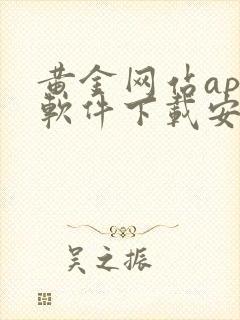 黄金网佔ap
軟件下載安
吴之振